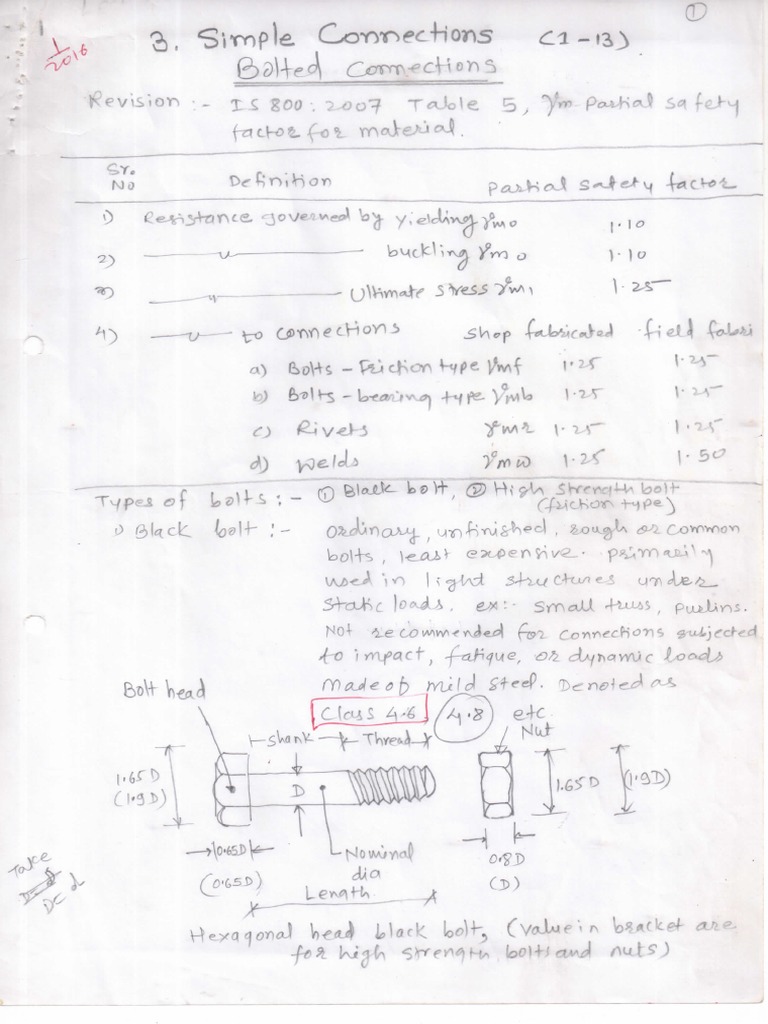 ①
1/2016
3. Simple Connections (1-13)
Bolted Connections
Revision :- IS 800 : 2007 Table 5, γm Partial safety
factor for material.
Sr. No Definition Partial Safety factor
1) Resistance governed by yielding γmo 1.10
2) ——〃—— buckling γmo 1.10
3) ——〃—— Ultimate stress γm1 1.25
4) ——〃—— to connections Shop fabricated field fabri
a) Bolts - Friction type γmf 1.25 1.25
b) Bolts - bearing type γmb 1.25 1.25
c) Rivets γmr 1.25 1.25
d) Welds γmw 1.25 1.50
Types of bolts :- ① Black bolt, ② High Strength bolt
(friction type)
1) Black bolt :- Ordinary, unfinished, rough or common
bolts, least expensive. primarily
used in light structures under
static loads. ex:- Small truss, purlins.
Not recommended for connections subjected
to impact, fatique, or dynamic loads
Made of mild steel. Denoted as
Class 4.6 4.8 etc.
Bolt head
Nut
Shank Thread
1.65D
(1.9D)
D
1.65D (1.9D)
0.65D
(0.65D)
Nominal
dia
0.8D
(D)
Length
Take
Hexagonal head black bolt, (value in bracket are
for high strength bolts and nuts)